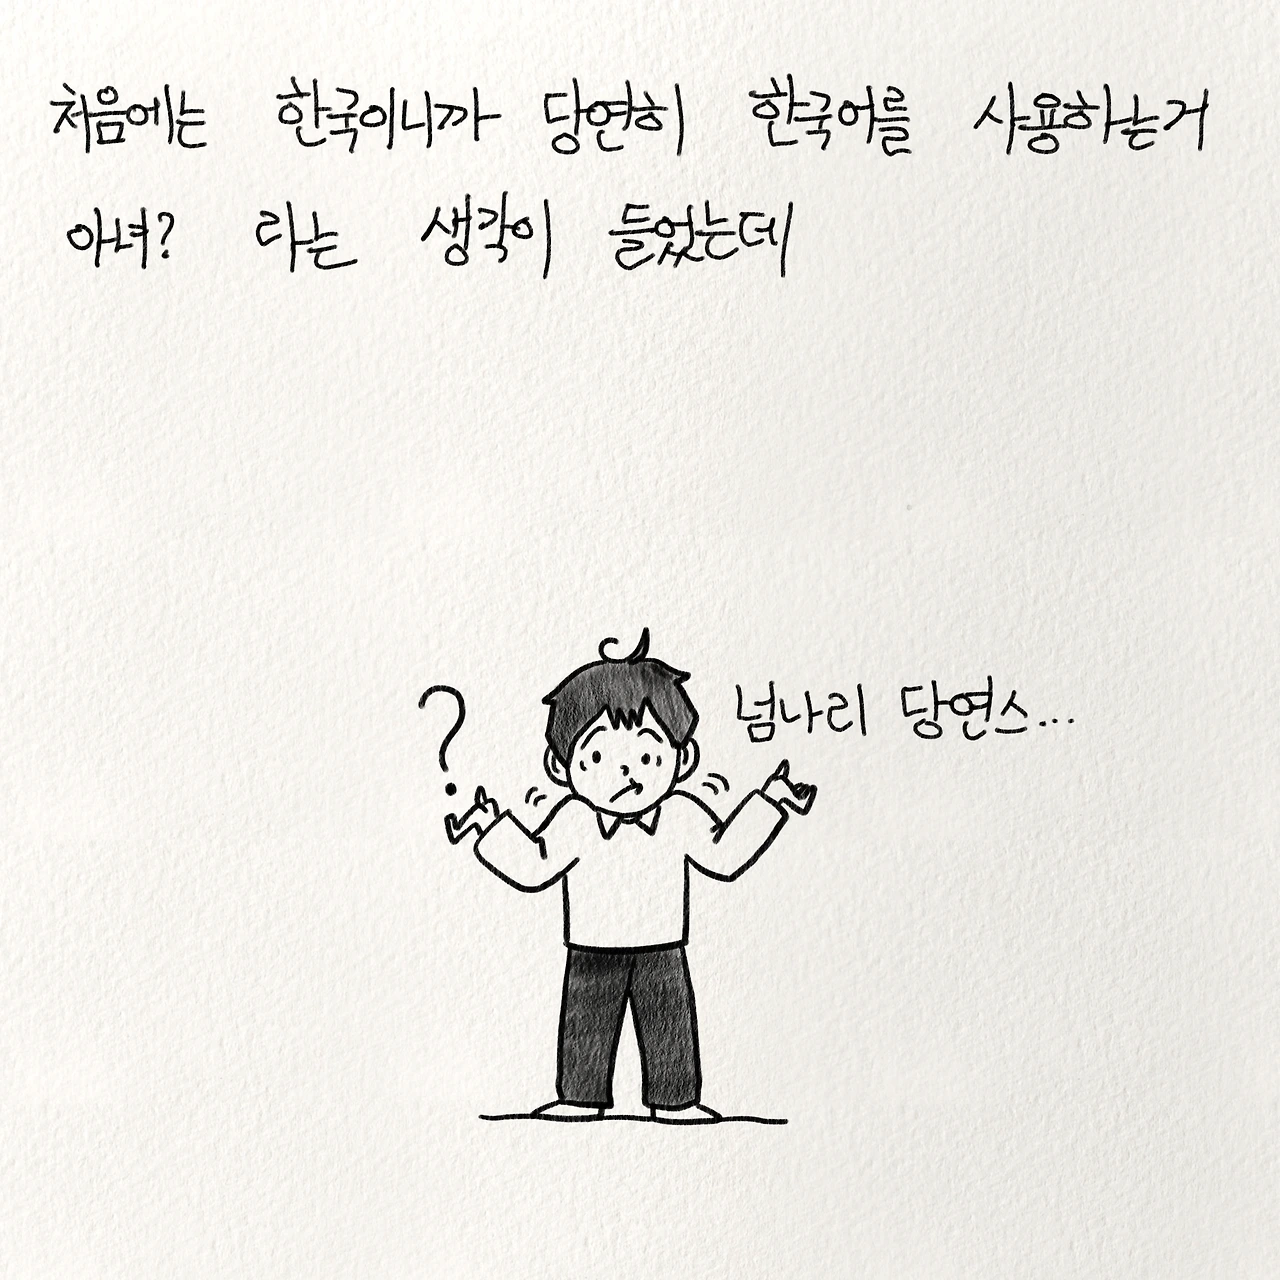 처음에는 한국이니까 당연히 한국어를 사용하는거
아녀? 라는 생각이 들었는데
?
넘나리 당연스...